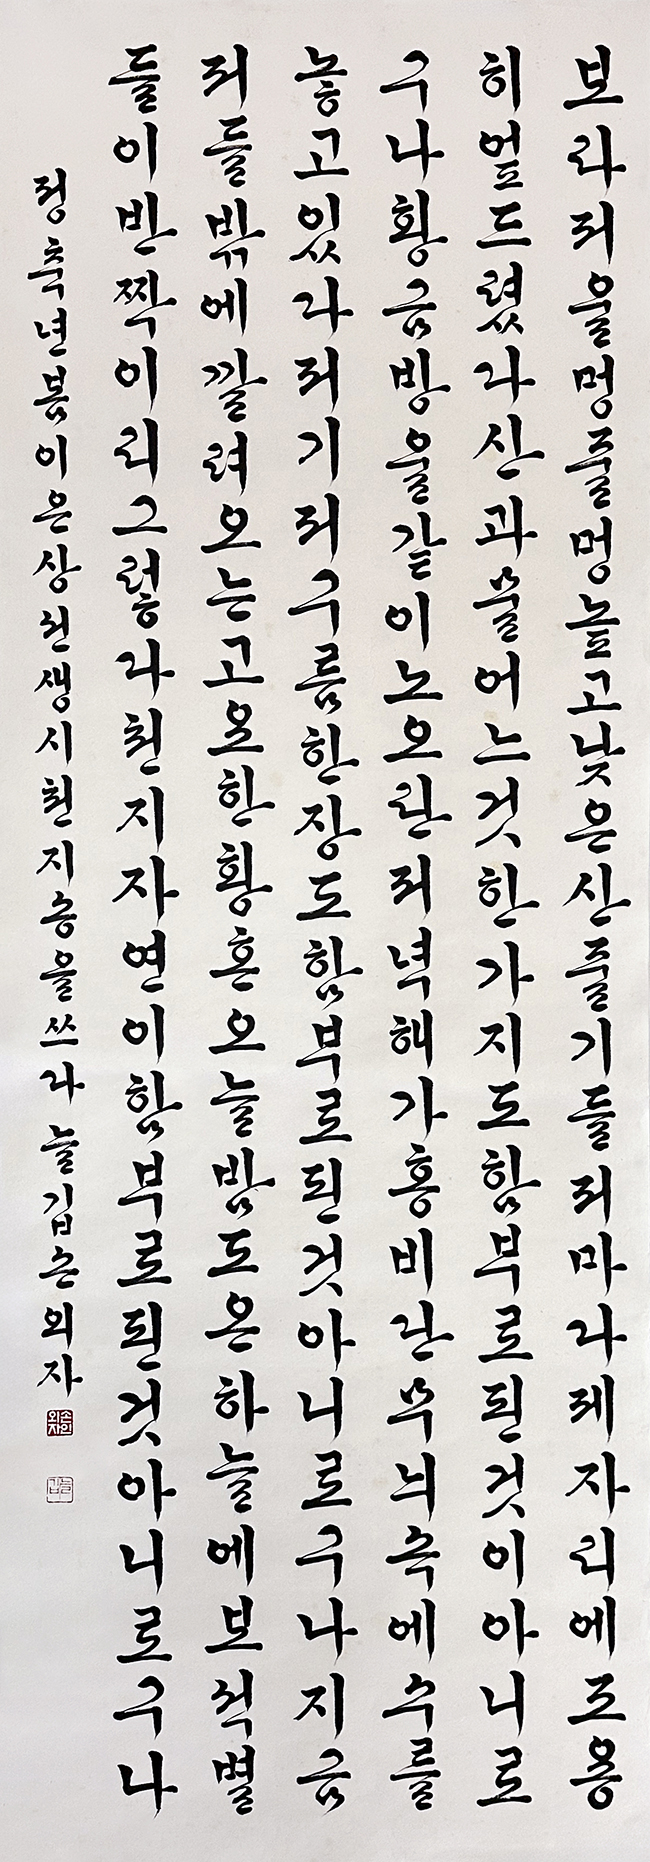 보라저울멍줄멍높고낮은산줄기들저마다제자리에조용
히엎드렸다산과물어느것한가지도함부로된것이아니로
구나황금방울같이노오란저녁해가홍비단무늬속에수를
놓고있다저기저구름한장도함부로된것아니로구나지금
저들밖에깔려오는고요한황혼오늘밤도온하늘에보석별
들이반짝이리그렇다천지자연이함부로된것아니로구나
정축년봄이은상선생시천지송을쓰다 늘깁손외자